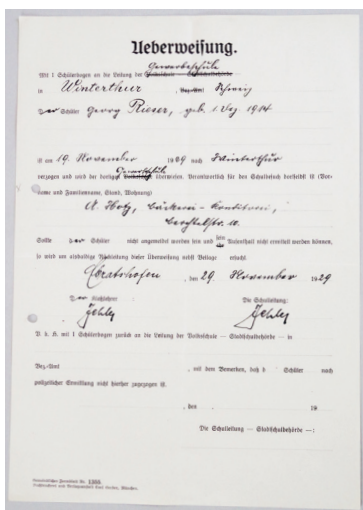 Ueberweisung.
Gewerbeschule
Mit 1 Schülerbogen an die Leitung der Volksschule – Stadtschulbehörde
in Winterthur, Bez.-Amt Schweiz
Der Schüler Georg Rieser, geb. 1. Dez. 1914
ist am 19. November 1929 nach Winterthur
Gewerbeschule
verzogen und wird der dortigen Volksschule überwiesen. Verantwortlich für den Schulbesuch daselbst ist (Vor-
name und Familienname, Stand, Wohnung)
A. Hotz, Bäckerei - Konditorei,
Sollte der Schüler nicht angemeldet worden sein und sein Aufenthalt nicht ermittelt werden können,
so wird um alsbaldige Rückleitung dieser Überweisung nebst Beilage ersucht.
, den 29. November 1929
Der Klaßlehrer: Die Schulleitung:
U. d. H. mit 1 Schülerbogen zurück an die Leitung der Volksschule – Stadtschulbehörde – in
Bez.-Amt , mit dem Bemerken, daß d Schüler nach
polizeilicher Ermittlung nicht hierher zugezogen ist.
, den 19
Die Schulleitung – Stadtschulbehörde –: